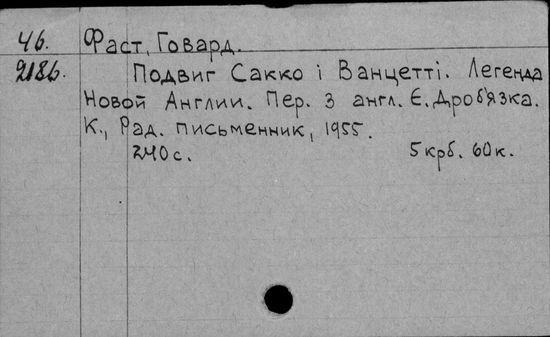 46. Фаст, Говард.
2186. Подвиг Сакко і Ванцетті. Легенда
Новой Англии. Пер. З англ. Є. Дроб'язка.
К., Рад. письменник, 1955.
240 с. 5 крб. 60 к.